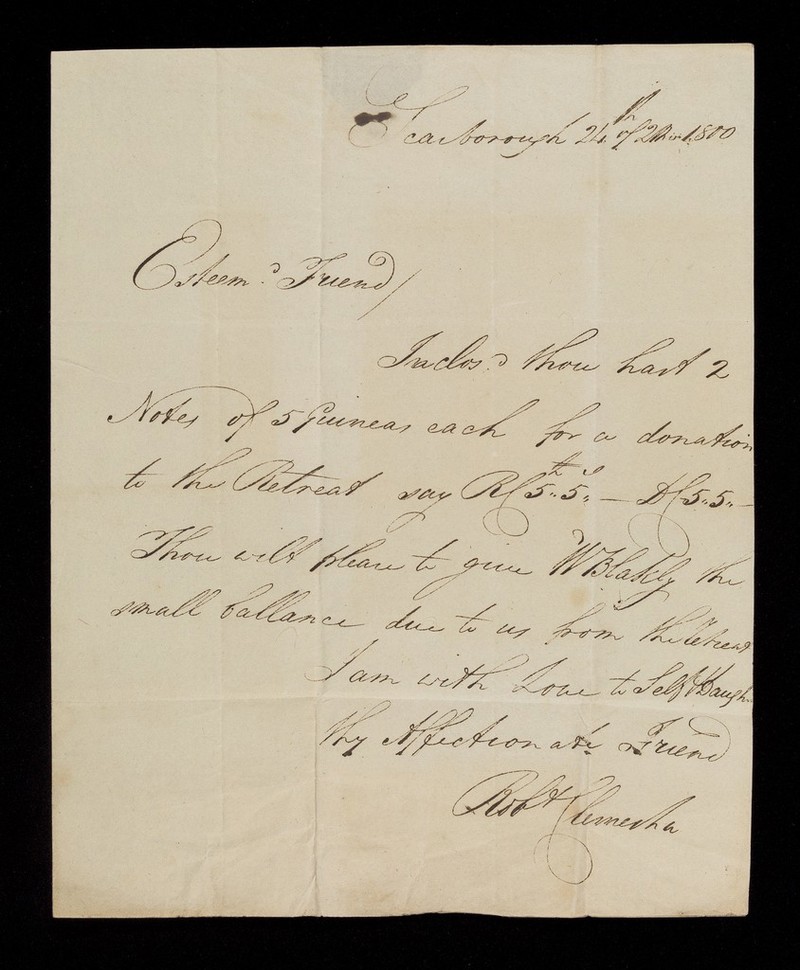 Scarborough 24th of 2 Mo 1800
Esteem.d Friend/
Inclos.d thou hast 2
Notes of 5 Guineas each for a donation
to the Retreat say RC 5"5" – DC 5"5" –
Thou wilt please to give W Blakely the
small ballance due to us from the Retreat
I am with Love to Self & Daugh
thy Affectionate Friend
Robt Clemesha